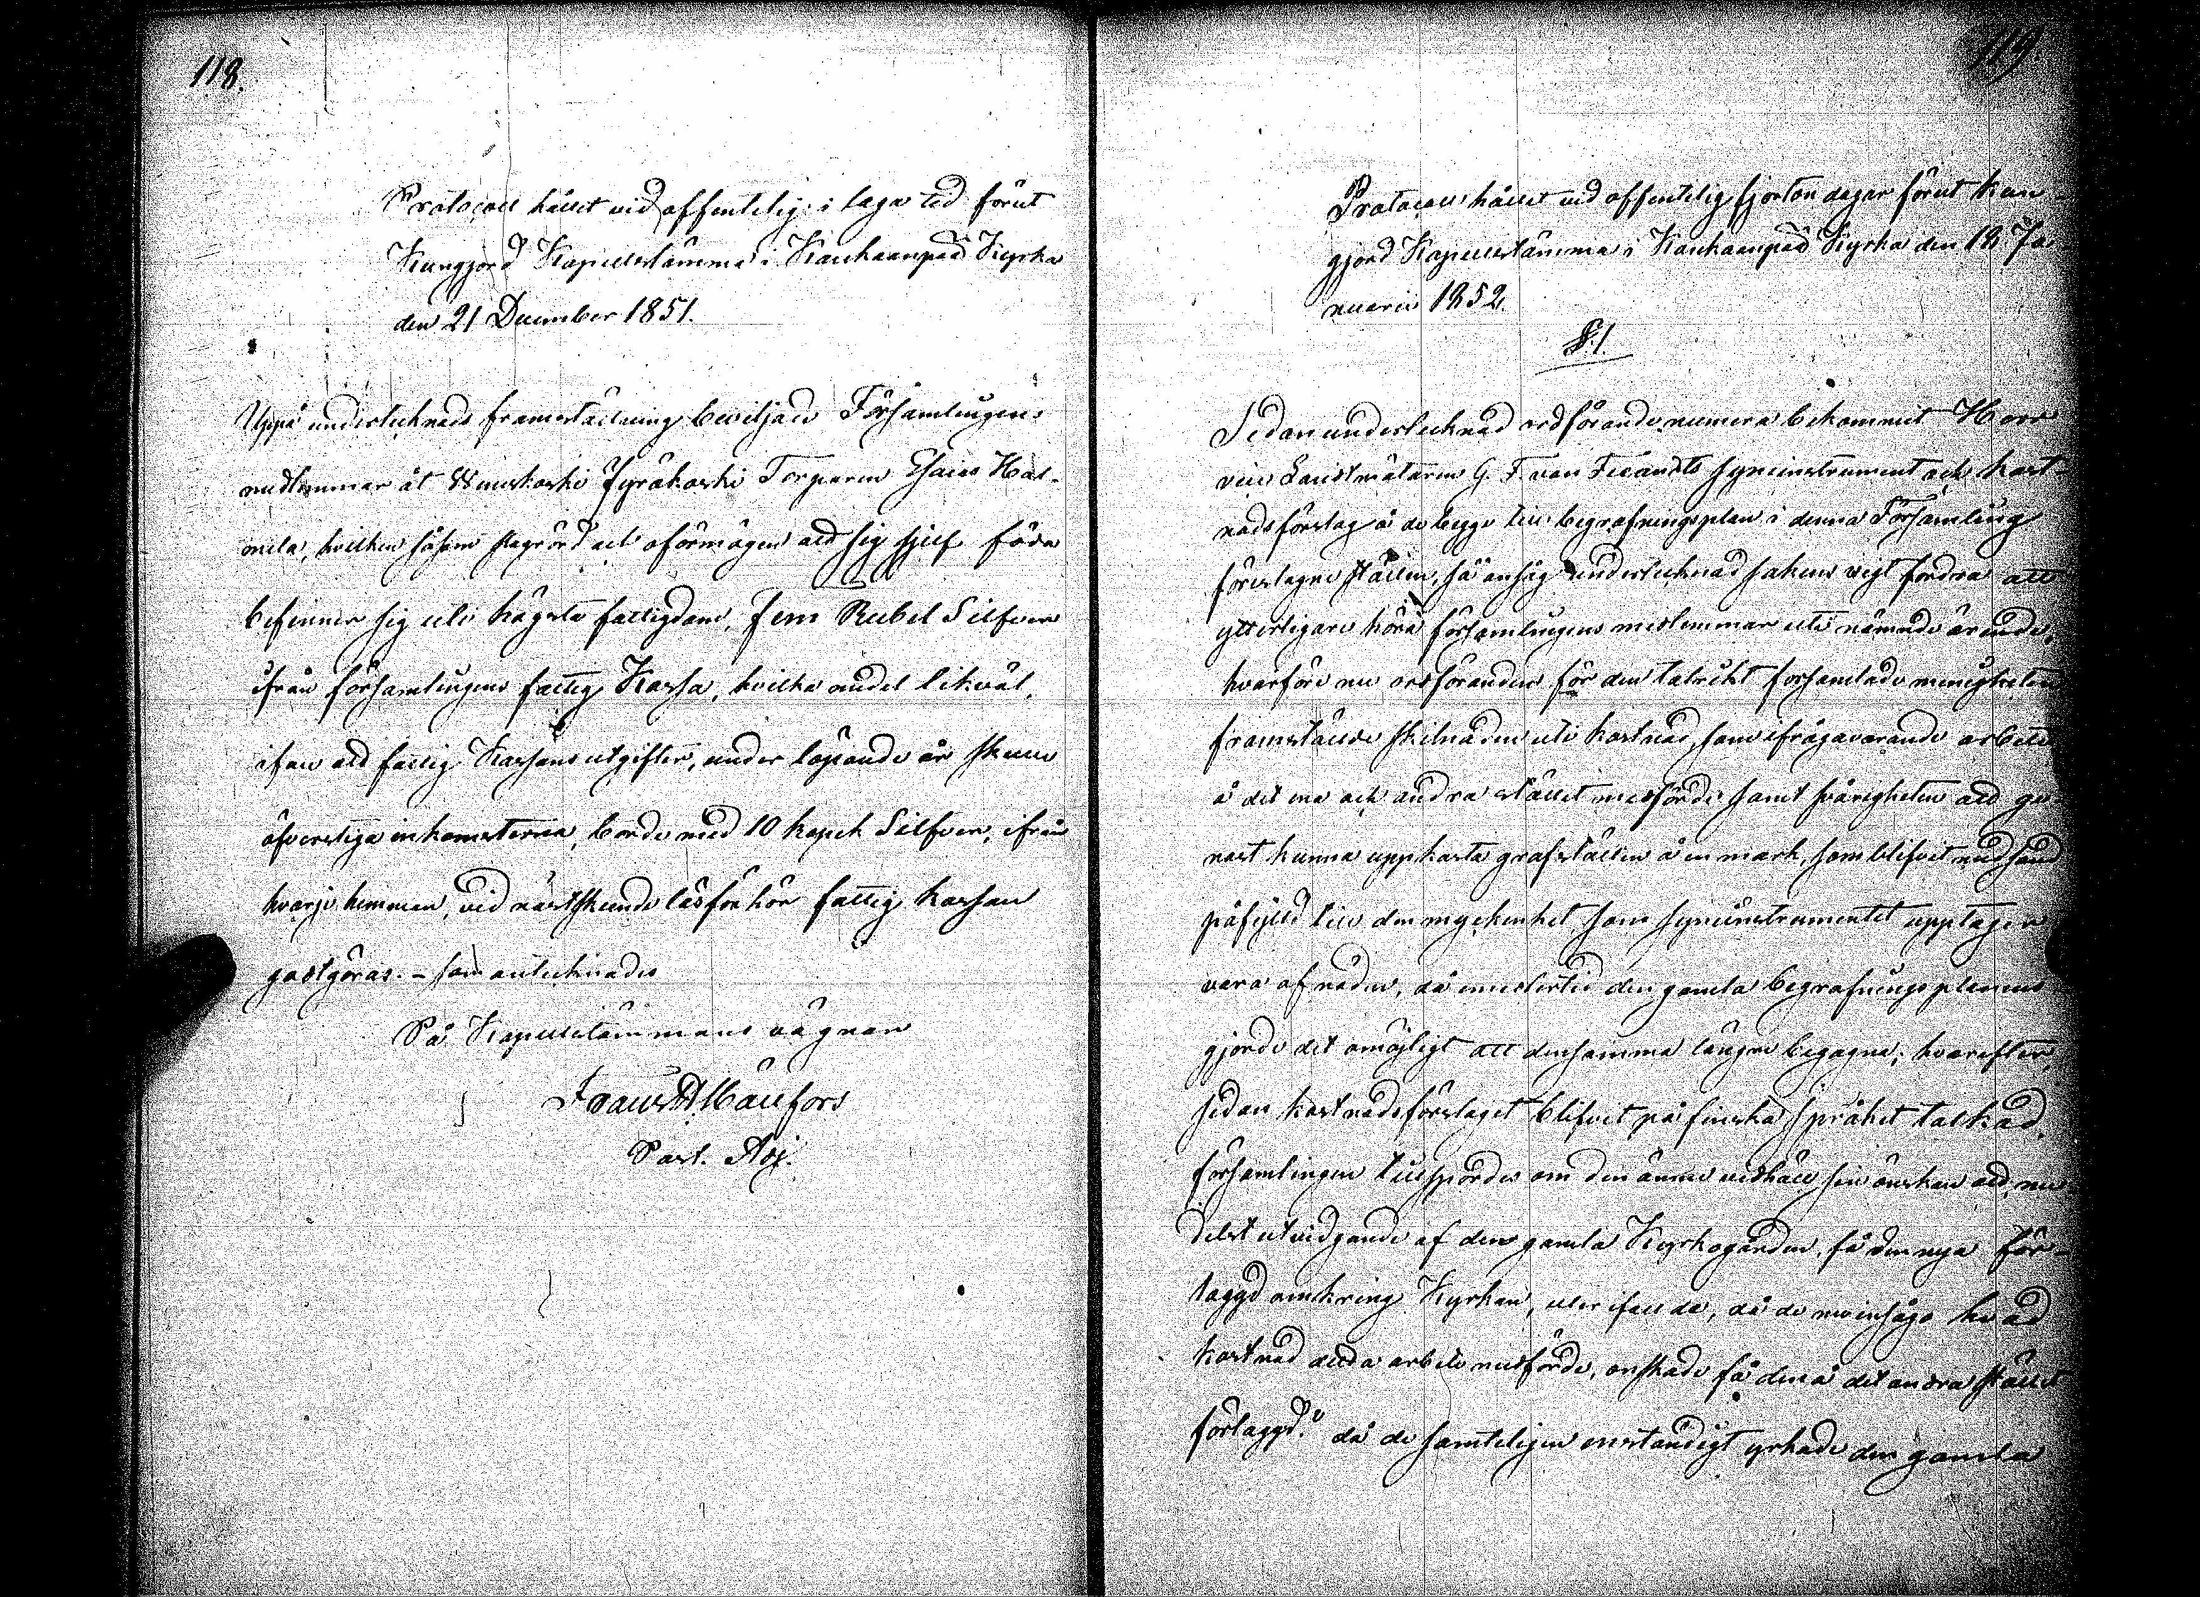 118.
Protocoll hållet vid offentelig i laga tid förut
Kungjord Kapellstämma i Kankaanpää Kyrka
den 21 December 1851.
Uppå undertecknads framställning beviljade Församlingens
medlemmar åt Jyräkoski Torparen Esaias Hal-
mela, hvilken såsom slagrörd och oförmögen att sig sjelf föda
befinner sig uti högsta fattigdom, fem Rubel Silfver
ifrån församlingens fattig Kassa, hvilka medel likväl,
ifall att fattig Kassans utgifter, under löpande år skulle
öfverstiga inkomsterna, borde med 10 kopek Silfver, ifrån
hvarje hemman, vid nästskeende läsförhör fattig kassan
godtgöras. – som antecknades
På Kapellstämmans vägnar
Frans H Mällfors
Past. Adj.
119.
Protocoll hållet vid offentelig fjorton dagar förut kun-
gjord Kapellstämma i Kankaanpää Kyrka den 18 Ja-
nuarii 1852.
§. 1.
Sedan undertecknad ordförande numera bekommit Herr
vice Landtmätaren G. F. von Fieandts syneinstrument och kost-
nadsförslag å de begge till begrafningsplan i denna Församling
föreslagne ställen, så ansåg undertecknad sakens vigt fordra att
ytterligare höra församlingens medlemmar uti nämnde ärende,
hvarföre nu ordföranden för den talrikt församlade menigheten
framställde skilnaden uti kostnad, som ifrågavarande arbete
å det ena och andra stället medförde samt svårigheten att ge-
nast kunna uppkasta grafställen å en mark, som blifvit med sand
påfylld till den myckenhet, som syneinstrumentet upptager
vara af nöden, då emedlertid den gamla begrafningsplanens
gjorde det omöjligt att densamma längre begagna; hvarefter,
sedan kostnadsförslaget blifvit på finska språket tolkad,
församlingen tillspordes om den ännu vidhöll sin önskan att me-
delst utvidgande af den gamla Kyrkogården, få den nya för-
laggd omkring Kyrkan, eller ifall de, då de nu insågo hvad
kostnad detta arbete medförde, önskade få den å det andra stället
förlaggd." då de samteligen enständigt yrkade den gamla